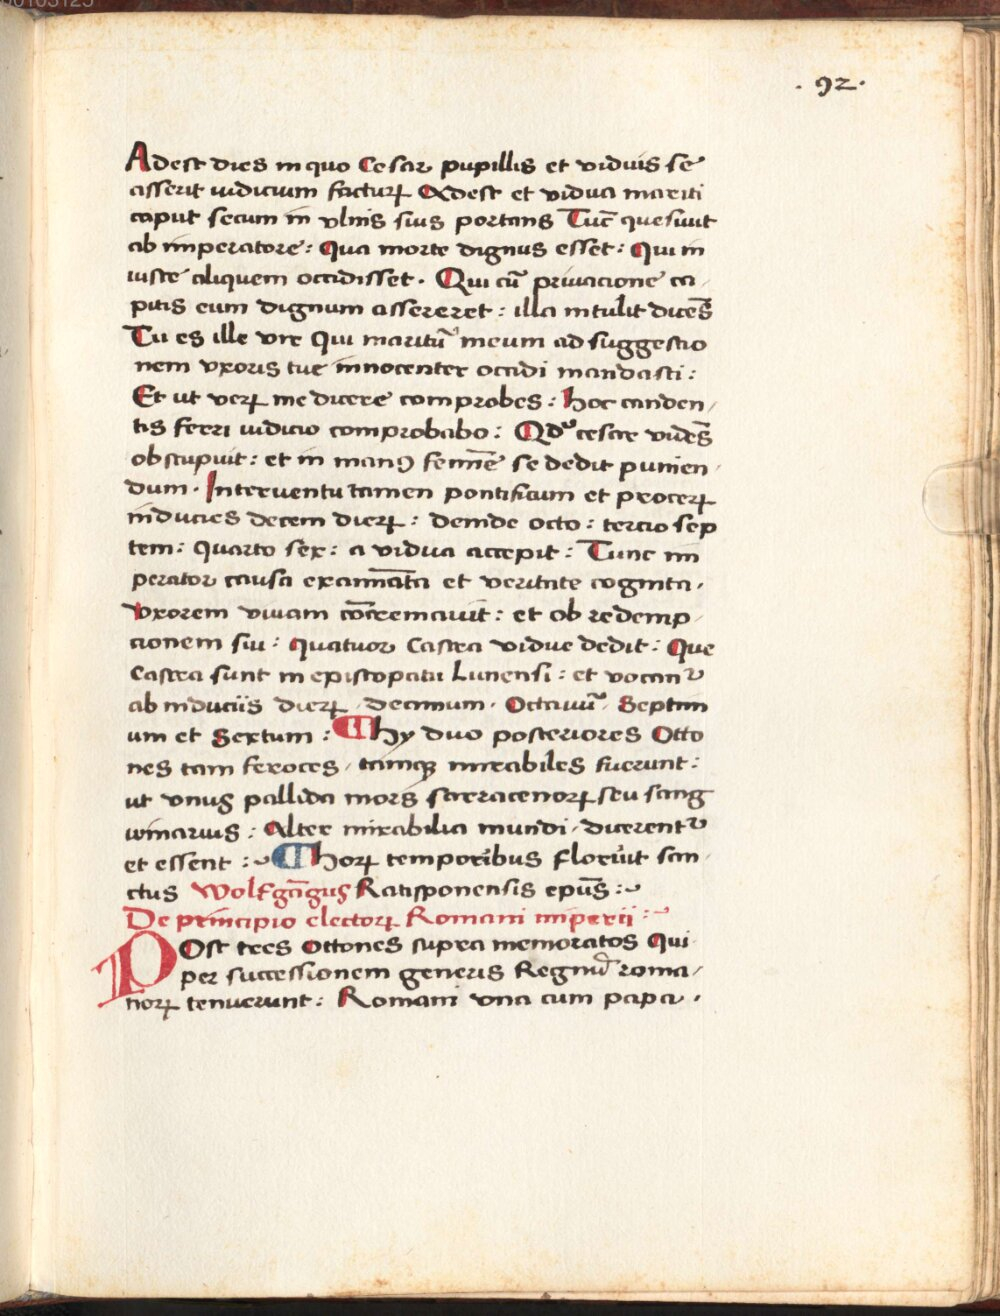 00103125
. 92 .
Adest dies in quo Cesar pupillis et viduis se
asserit iudicium facturꝝ Adest et vidua mariti
caput secum in vlnis suis portans Tūc quesiuit
ab imperatore : Qua morte dignus esset : Qui in
iuste aliquem occidisset . Qui cū priuacione ca
pitis eum dignum assereret : illa intulit dicēs
Tu es ille vir Qui maritū meum ad suggestio
nem vxoris tue innocenter occidi mandasti :
Et ut verꝝ me dicere comprobes : hoc canden
tis ferri iudicio comprobabo : Qdͦ cesar vidēs
obstupuit : et in manꝰ femīe se dedit punien
dum . Interuentu tamen pontificum et procerꝝ
inducies decem dierꝝ : deinde octo : tercio sep
tem : quarto sex : a vidua accepit : Tunc im
perator causa examīata et veritate cognita .
vxorem viuam cōcremauit : et ob redemp
cionem sui : quatuor Castra vidue dedit : Que
Castra sunt in episcopatu Lunensi : et vocant᷑
ab induciis dierꝝ . decimum . Octauū . Septim
um et Sextum : ¶ hy duo posteriores Otto
nes tam feroces . tamqꝫ mirabiles fuerunt :
ut vnus pallida mors sarracenorꝝ seu sang
winarius : Alter mirabilia mundi . dicerent᷑
et essent : ¶ horꝝ temporibus floruit san
ctus Wolfgāgus Ratisponensis epūs :
De principio electorꝝ Romani imperii :
Post tres Ottones supra memoratos Qui
per successionem generis Regnū roma
norꝝ tenuerunt : Romani vna cum papa .